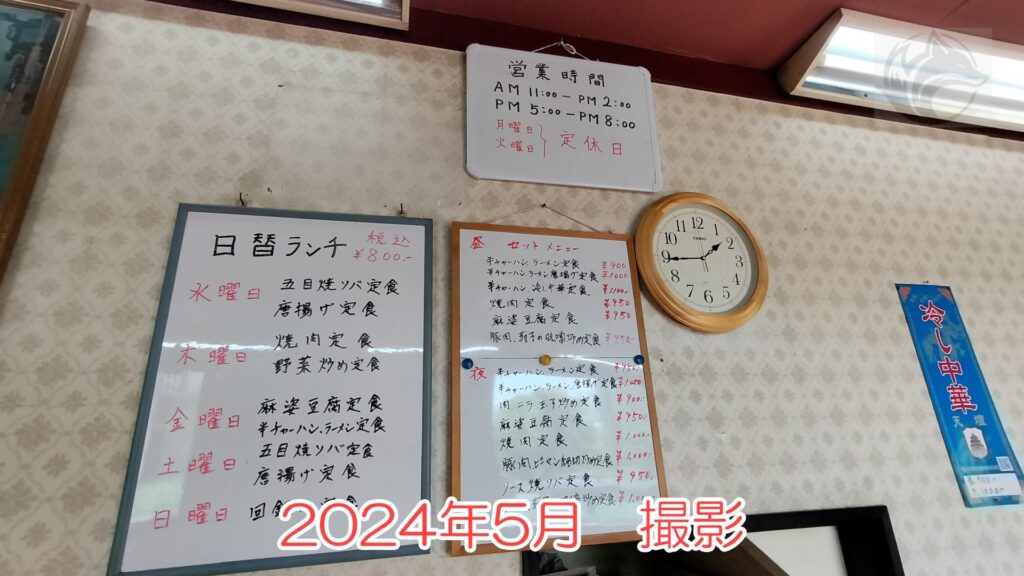 営業時間
AM 11:00 - PM 2:00
PM 5:00 - PM 8:00
月曜日
火曜日
定休日
日替ランチ
税込
¥800.-
水曜日
五目焼ソバ定食
唐揚げ定食
木曜日
焼肉定食
野菜炒め定食
金曜日
麻婆豆腐定食
半チャーハン、ラーメン定食
土曜日
五目焼ソバ定食
唐揚げ定食
日曜日
回
定食
昼 セットメニュー
半チャーハン、ラーメン定食 ¥900
半チャーハン、ラーメン唐揚げ定食 ¥1000
半チャーハン 冷し中華定食 ¥1100
焼肉定食 ¥950
麻婆豆腐定食 ¥950
豚肉、
炒め定食 ¥950
夜
半チャーハン、ラーメン定食 ¥950
半チャーハン、ラーメン、唐揚げ定食 ¥1,000
肉、ニラ玉子炒め定食 ¥900.
麻婆豆腐定食 ¥950.
焼肉定食 ¥1,000.
豚肉、ピーマン細切炒め定食 ¥1,000.
ソース焼ソバ定食 ¥950
炒め定食
12
1
2
3
4
5
6
7
8
9
10
11
冷し中華
天壇
2024年5月 撮影